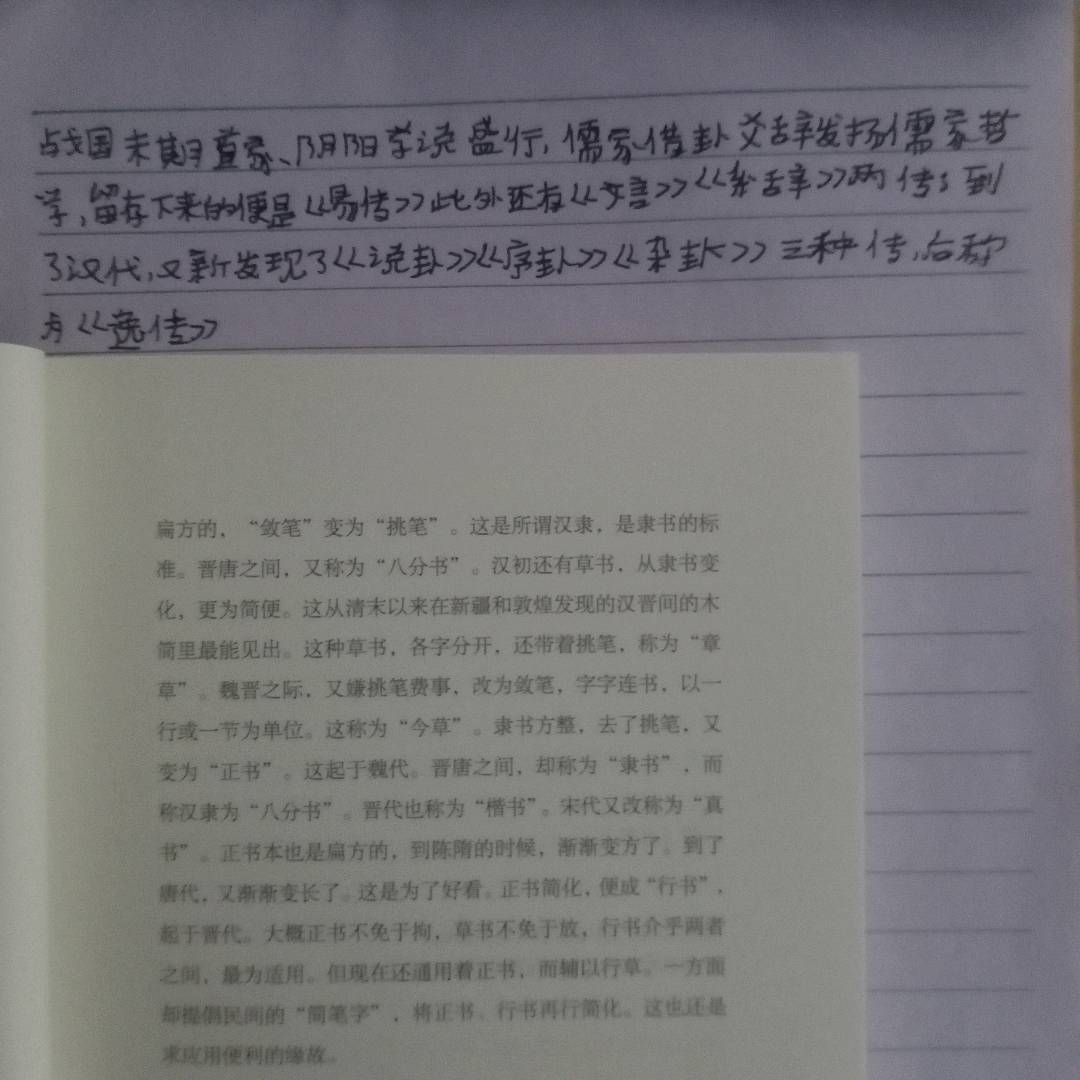 战国末期道家、阴阳学说盛行,儒家借卦爻辞发扬儒家哲
学,留存下来的便是《易传》此外还有《文言》《系辞》两传;到
了汉代,又新发现了《说卦》《序卦》《杂卦》三种传,后称
为《逸传》
扁方的，“敛笔”变为“挑笔”。这是所谓汉隶，是隶书的标
准。晋唐之间，又称为“八分书”。汉初还有草书，从隶书变
化，更为简便。这从清末以来在新疆和敦煌发现的汉晋间的木
简里最能见出。这种草书，各字分开，还带着挑笔，称为“章
草”。魏晋之际，又嫌挑笔费事，改为敛笔，字字连书，以一
行或一节为单位。这称为“今草”。隶书方整，去了挑笔，又
变为“正书”。这起于魏代。晋唐之间，却称为“隶书”，而
称汉隶为“八分书”。晋代也称为“楷书”。宋代又改称为“真
书”。正书本也是扁方的，到陈隋的时候，渐渐变方了。到了
唐代，又渐渐变长了。这是为了好看。正书简化，便成“行书”，
起于晋代。大概正书不免于拘，草书不免于放，行书介乎两者
之间，最为适用。但现在还通用着正书，而辅以行草。一方面
却提倡民间的“简笔字”，将正书、行书再行简化。这也还是
求应用便利的缘故。